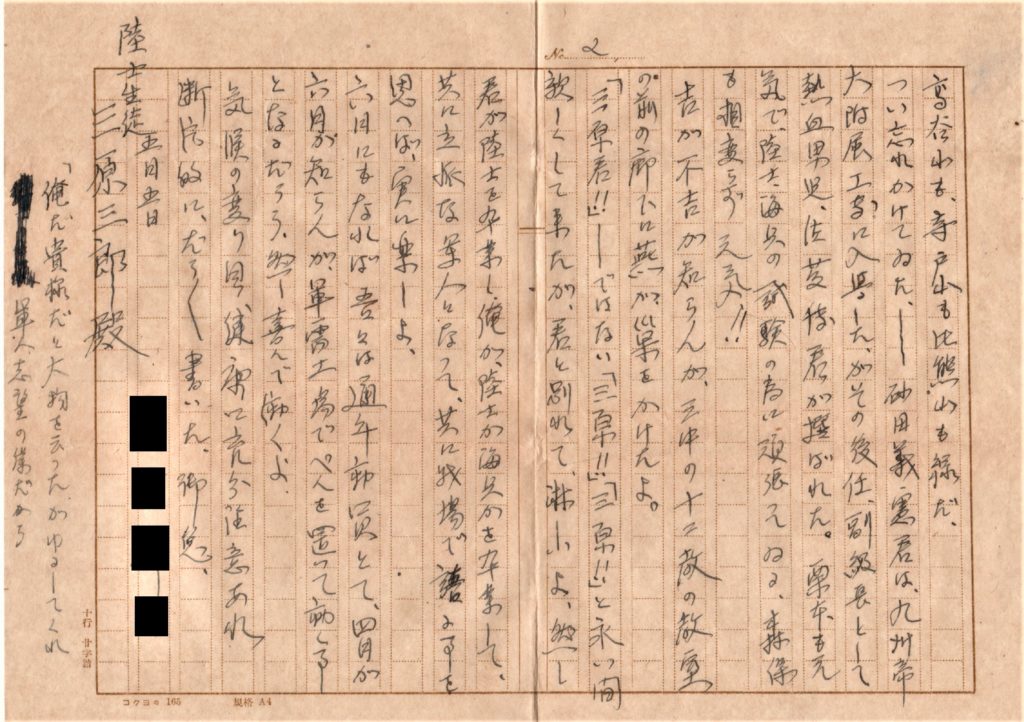 No. 2
高谷山も、寺戸山も比熊山も緑だ、
つい忘れかけてゐた、── 砂田義憲君は、九州帝
大附属工専に入学した、がその後任、副級長として
熱血男児、法菱 君が撰ばれた。栗本も元
気で、陸士海兵の試験の為に頑張てゐる、森保
も相変らず 元気!!
吉か不吉か知らんが、三中の十二教の教室
の前の廊下に燕が巣をかけたよ。
「三原君!!」──ではない「三原!!」「三原!!」と永い間
歓しくして来たが、君と別れて、淋しいよ、然し
君が陸士を卒業し俺が、陸士か海兵かを卒業して、
共に立派な軍人になって、共に戦場で 事を
思へば、実に楽しよ、
六月にもなれば吾々は通年動員とて、四月か
六月か知らんが、軍需工場でペンを置いて働く事
となるだらう、然し喜んで働くよ、
気候の変り目、健康に充分注意あれ
断片的に、だらだら書いた、御免、
五月五日
陸士生徒
三原三郎殿
「俺だ貴様だと大物を云ったが、ゆるしてくれ
軍人志望の俺だから
十行 廿字詰
コクヨの 165 規格 A4